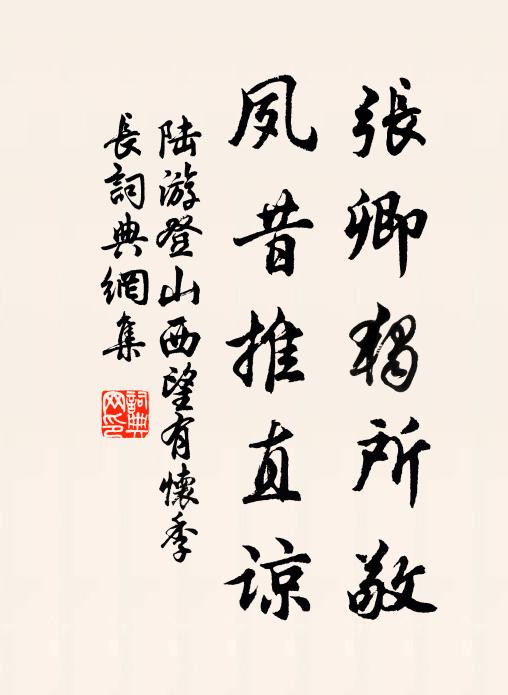 張卿獨所敬
夙昔推直諒
陸游登山西望有懷季
長詞典網集
詞典
网印